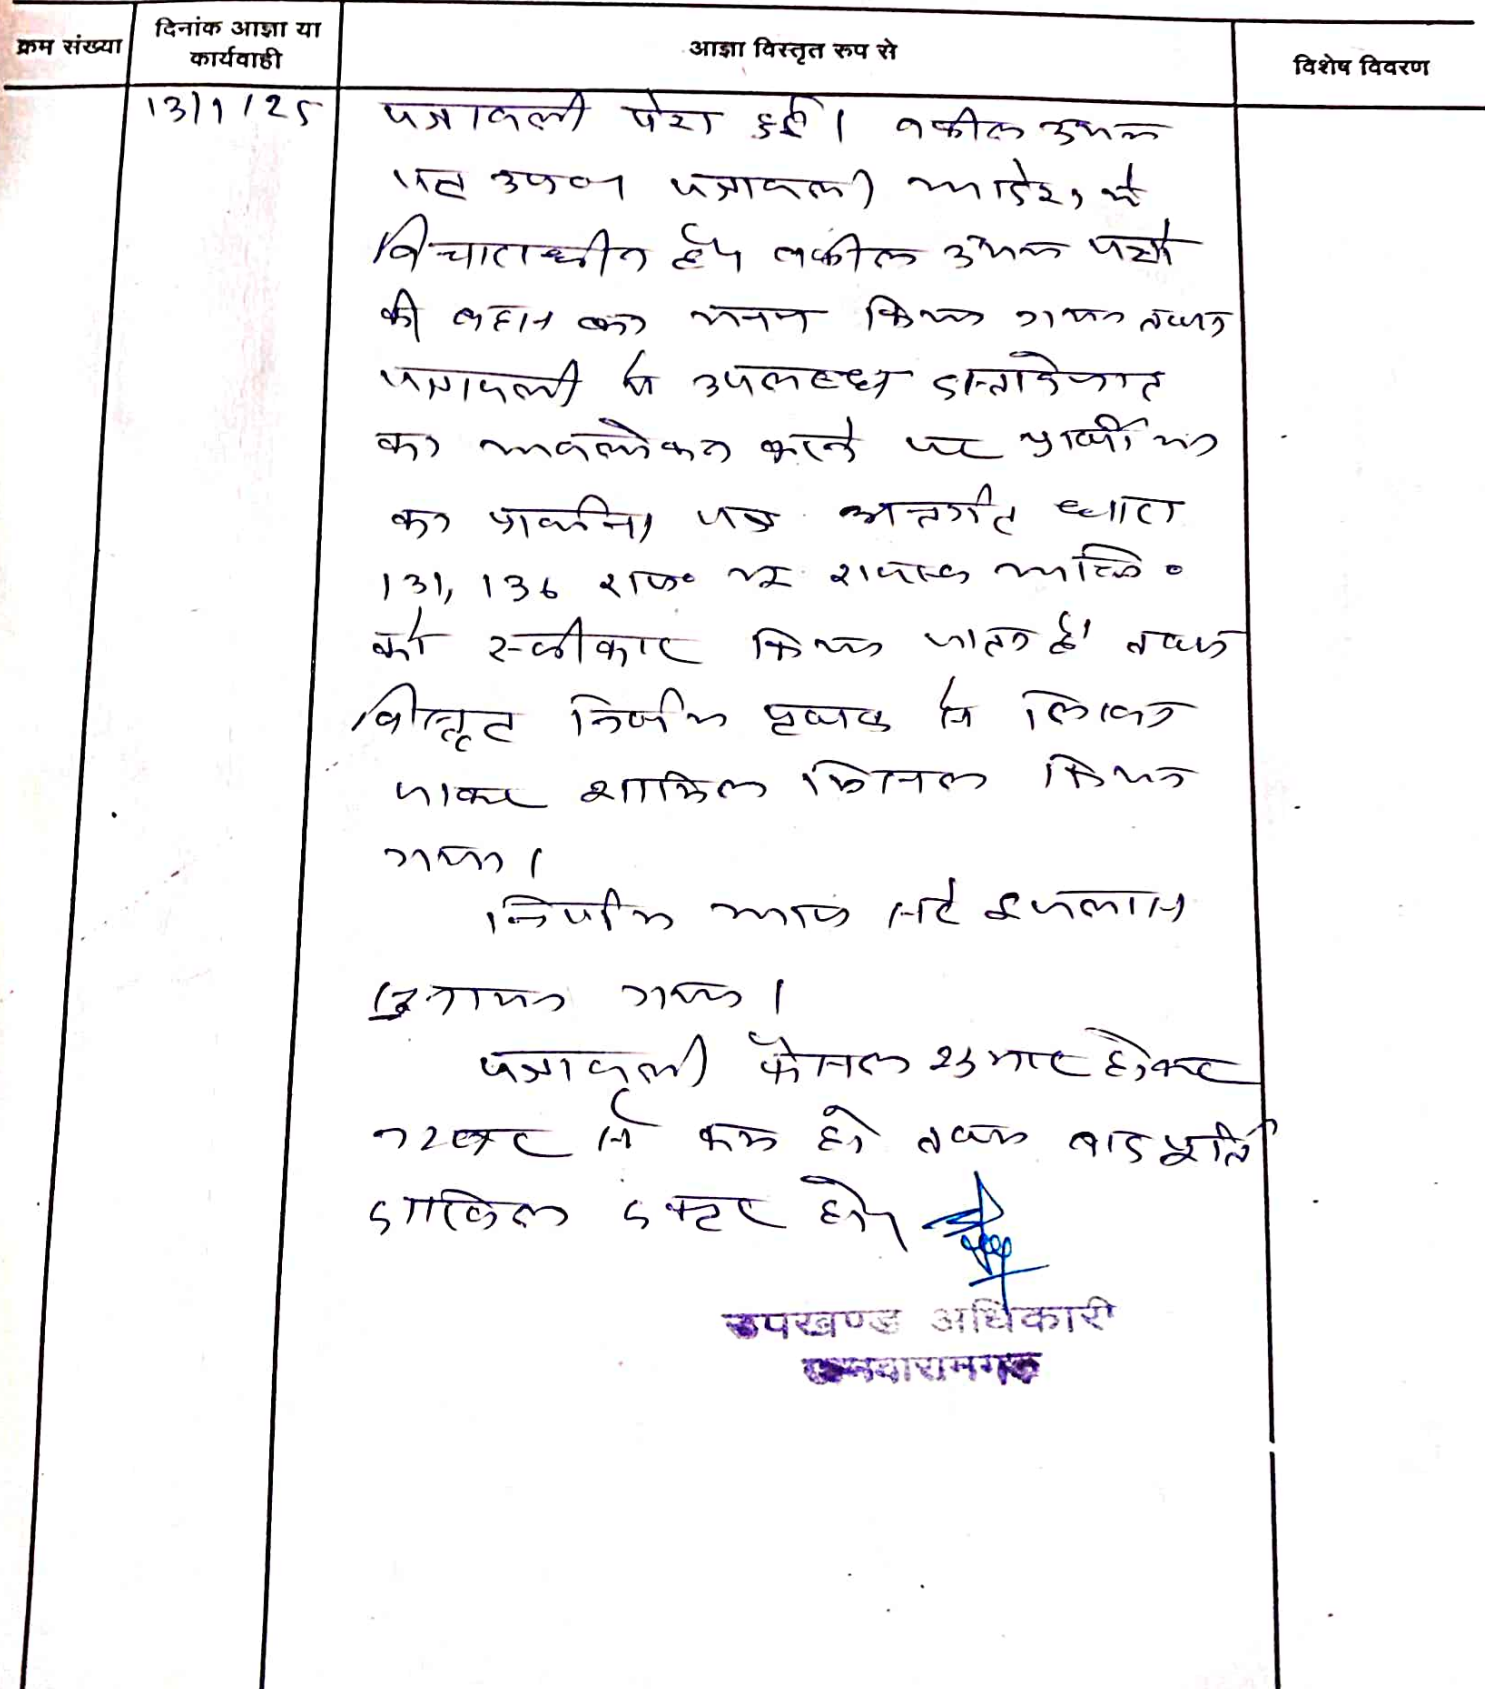 क्रम संख्या
दिनांक आज्ञा या
कार्यवाही
आज्ञा विस्तृत रूप से
विशेष विवरण
13/1/25
पत्रावली पेश हुई। वकील उभय
पक्ष उप० पत्रावली आदेश में
विचाराधीन है। वकील उभय पक्षों
की बहस का मनन किया गया तथा
पत्रावली में उपलब्ध दस्तावेजात
का अवलोकन करने पर प्रार्थीया
का प्रार्थना पत्र अन्तर्गत धारा
131, 136 राज० भू राजस्व अधि०
को स्वीकार किया जाता है। तथा
विस्तृत निर्णय पृथक से लिखा
जाकर शामिल मिसल किया
गया।
निर्णय आज सरे इजलास
सुनाया गया।
पत्रावली फैसल शुमार होकर
नम्बर से कम हो तथा बाद पूर्ति
दाखिल दफ्तर हो।
उपखण्ड अधिकारी
जमवारामगढ़